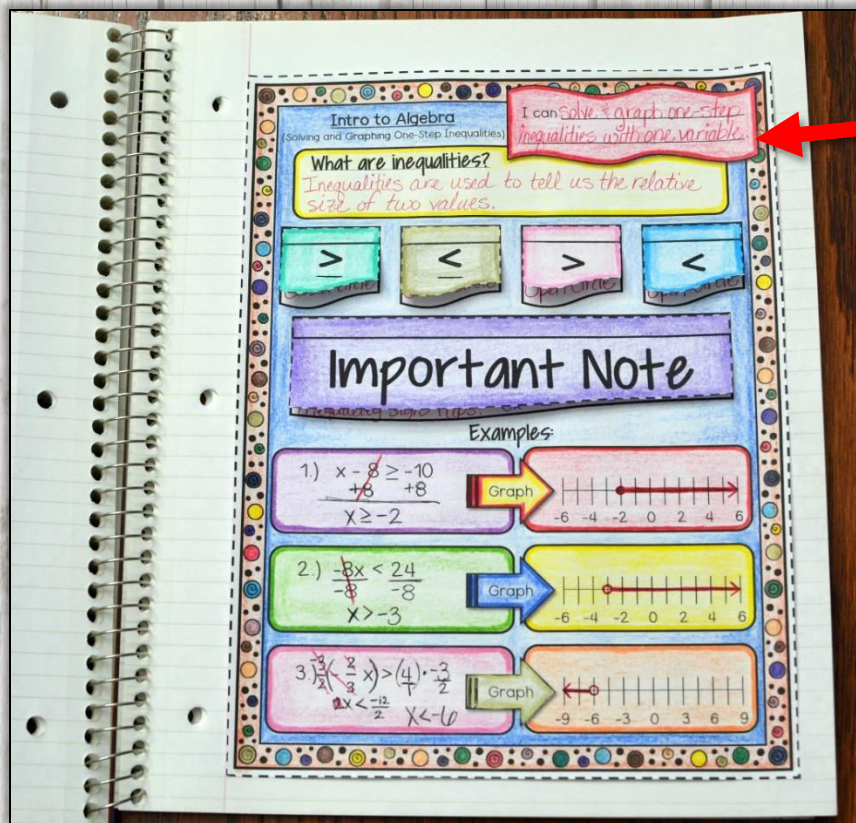 Intro to Algebra
(Solving and Graphing One-Step Inequalities)
I can solve & graph one-step
inequalities with one variable.
What are inequalities?
Inequalities are used to tell us the relative
size of two values.
≥
≤
>
<
Open Circle
Open Circle
Important Note
Inequality Signs Flips
Examples:
1.) x - 8 ≥ -10
+8 +8
x ≥ -2
Graph
-6 -4 -2 0 2 4 6
2.) -8x < 24
-8 -8
x > -3
Graph
-6 -4 -2 0 2 4 6
3.) -3/2 (-2/3 x) > (4/1) · -3/2
x < -12/2 x < -6
Graph
-9 -6 -3 0 3 6 9